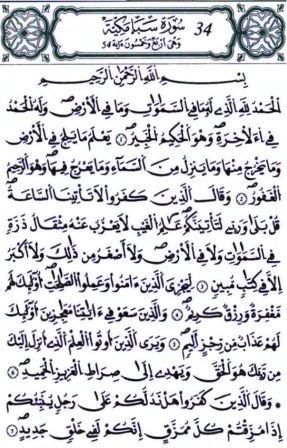 سُورَةُ سَبَإٍ مَكِّيَّةٌ 34
وَهِيَ أَرْبَعٌ وَخَمْسُونَ ءَايَة 54
بِسْمِ اِللَّهِ اِلرَّحْمَٰنِ اِلرَّحِيمِ
اَلْحَمْدُ لِلهِ اِلذِے لَهُۥ مَا فِے اِلسَّمَٰوَٰتِ وَمَا فِے اِلْأَرْضِ وَلَهُ اُلْحَمْدُ
فِے اِءلَاخِرَةِ وَهُوَ اَلْحَكِيمُ اُلْخَبِيرُ ١ يَعْلَمُ مَا يَلِجُ فِے اِلْأَرْضِ
وَمَا يَخْرُجُ مِنْهَا وَمَا يَنزِلُ مِنَ اَلسَّمَآءِ وَمَا يَعْرُجُ فِيهَا وَهُوَ اَلرَّحِيمُ
اُلْغَفُورُ ٢ وَقَالَ اَلذِينَ كَفَرُواْ لَا تَأْتِينَا اَلسَّاعَةُ
قُلْ بَلَىٰ وَرَبِّے لَتَأْتِيَنَّكُمْ عَٰلِمُ اُلْغَيْبِ لَا يَعْزُبُ عَنْهُ مِثْقَالُ ذَرَّةٍ
فِے اِلسَّمَٰوَٰتِ وَلَا فِے اِلْأَرْضِ وَلَا أَصْغَرُ مِن ذَٰلِكَ وَلَا أَكْبَرُ
إِلَّا فِے كِتَٰبٍ مُّبِينٍ ٣ لِّيَجْزِيَ اَلذِينَ ءَامَنُواْ وَعَمِلُواْ اُلصَّٰلِحَٰتِ أُوْلَٰٓئِكَ لَهُم
مَّغْفِرَةٌ وَرِزْقٌ كَرِيمٌ ٤ وَالذِينَ سَعَوْ فِے ءَايَٰتِنَا مُعَٰجِزِينَ أُوْلَٰٓئِكَ
لَهُمْ عَذَابٌ مِّن رِّجْزٍ أَلِيمٍ ٥ وَيَرَى اَلذِينَ أُوتُواْ اُلْعِلْمَ اَلذِے أُنزِلَ إِلَيْكَ
مِن رَّبِّكَ هُوَ اَلْحَقَّ وَيَهْدِے إِلَىٰ صِرَٰطِ اِلْعَزِيزِ اِلْحَمِيدِ ٦
وَقَالَ اَلذِينَ كَفَرُواْ هَلْ نَدُلُّكُمْ عَلَىٰ رَجُلٍ يُنَبِّئُكُمْ
إِذَا مُزِّقْتُمْ كُلَّ مُمَزَّقٍ إِنَّكُمْ لَفِے خَلْقٍ جَدِيدٍ ٧